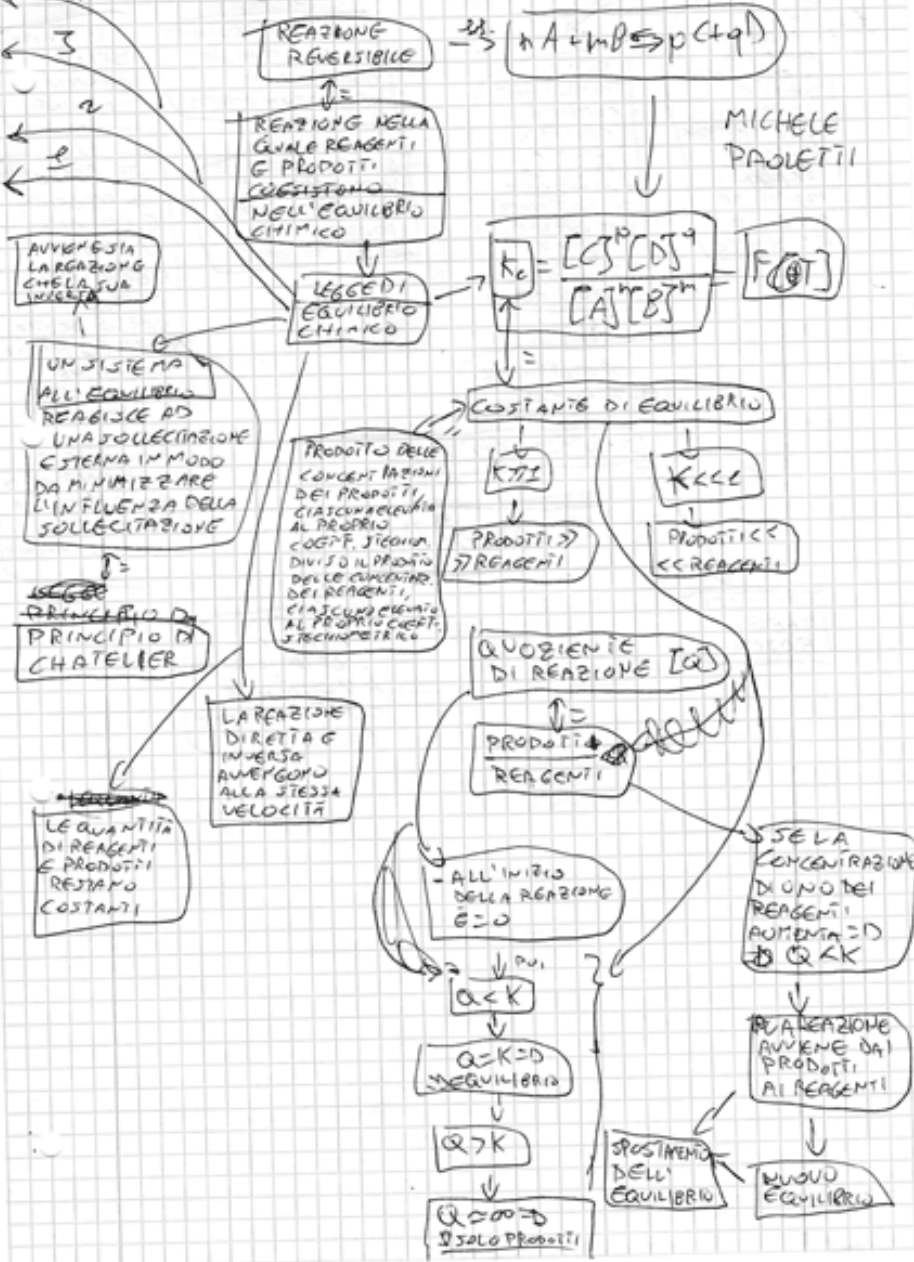 3
2
1
REAZIONE
REVERSIBILE
nA+mB⇆pC+qD
MICHELE
PAOLETTI
REAZIONE NELLA
QUALE REAGENTI
E PRODOTTI
COESISTONO
NELL'EQUILIBRIO
CHIMICO
AVVIENE SIA
LA REAZIONE
CHE LA SUA
INVERSA
LEGGE DI
EQUILIBRIO
CHIMICO
Kc = [C]^p [D]^q
[A]^n [B]^m
UN SISTEMA
ALL'EQUILIBRIO
REAGISCE AD
UNA SOLLECITAZIONE
ESTERNA IN MODO
DA MINIMIZZARE
L'INFLUENZA DELLA
SOLLECITAZIONE
PRINCIPIO DI
PRINCIPIO DI
CHATELIER
COSTANTE DI EQUILIBRIO
PRODOTTO DELLE
CONCENTRAZIONI
DEI PRODOTTI,
CIASCUNA ELEVATA
AL PROPRIO
COEFF. STECHIOM.
DIVISO IL PRODOTTO
DELLE CONCENTRAZ.
DEI REAGENTI,
CIASCUNO ELEVATO
AL PROPRIO COEFF.
STECHIOMETRICO
K>>1
PRODOTTI >>
>> REAGENTI
K<<1
PRODOTTI <<
<< REAGENTI
QUOZIENTE
DI REAZIONE [Q]
PRODOTTI
REAGENTI
LA REAZIONE
DIRETTA E
INVERSA
AVVENGONO
ALLA STESSA
VELOCITÀ
LE QUANTITÀ
DI REAGENTI
E PRODOTTI
RESTANO
COSTANTI
- ALL'INIZIO
DELLA REAZIONE
È = 0
POI
Q < K
Q = K =D
EQUILIBRIO
Q > K
Q = ∞ =D
SOLO PRODOTTI
SE LA
CONCENTRAZIONE
DI UNO DEI
REAGENTI
AUMENTA =D
Q < K
LA REAZIONE
AVVIENE DAI
PRODOTTI
AI REAGENTI
SPOSTAMENTO
DELL'
EQUILIBRIO
NUOVO
EQUILIBRIO